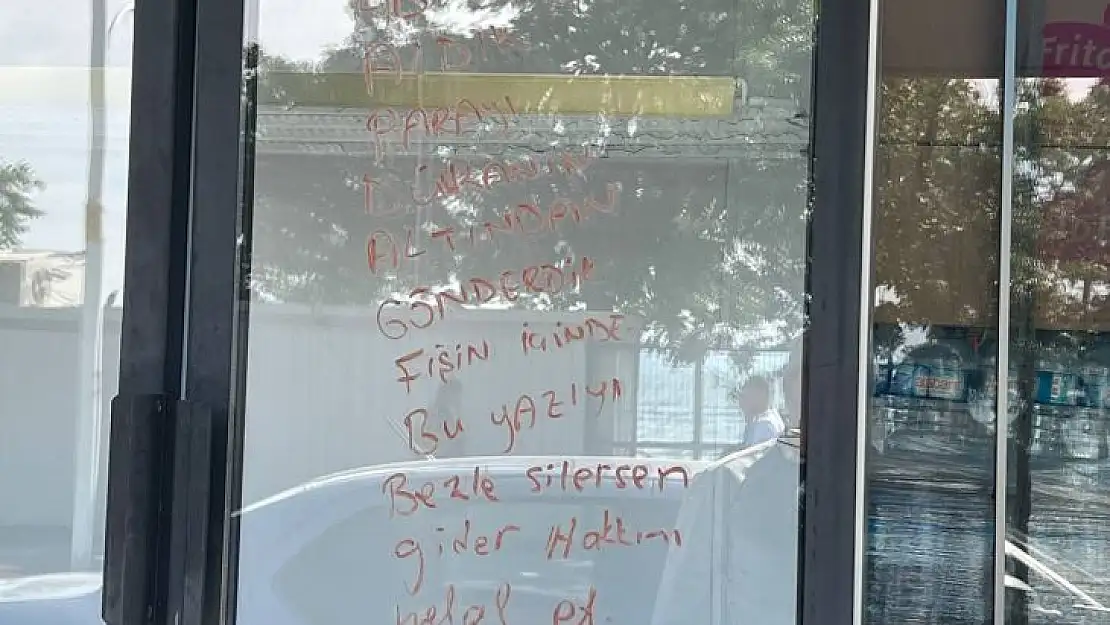 ALDIK
PARAYI
DÜKKANIN
ALTINDAN
GÖNDERDİK
FİŞİN İÇİNDE
Bu YAZIYI
Bezle silersen
gider Hakkını
helal et.
Frito